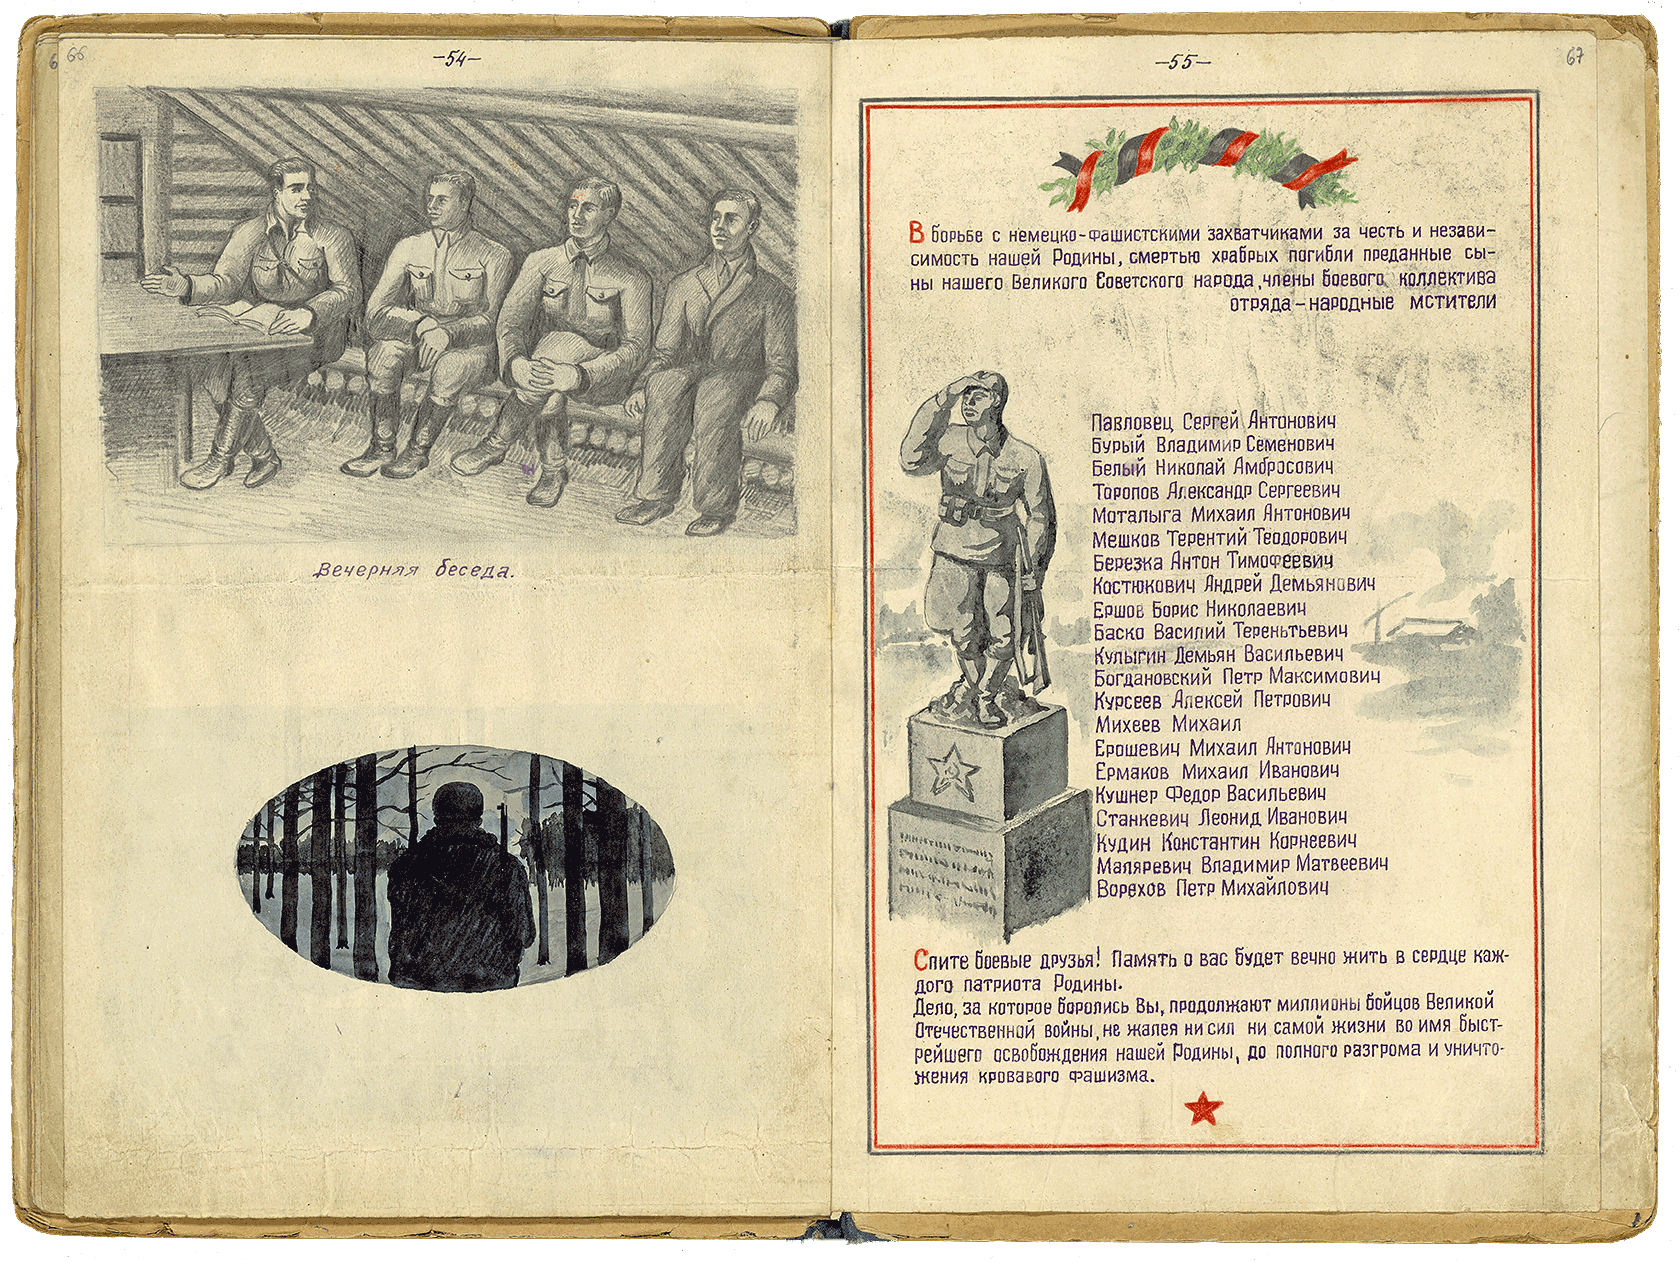 66
-54-
Вечерняя беседа.
-55-
67
В борьбе с немецко-фашистскими захватчиками за честь и незави-
симость нашей Родины, смертью храбрых погибли преданные сы-
ны нашего Великого Советского народа, члены боевого коллектива
отряда - народные мстители
Павловец Сергей Антонович
Бурый Владимир Семенович
Белый Николай Амбросович
Торопов Александр Сергеевич
Моталыга Михаил Антонович
Мешков Терентий Теодорович
Березка Антон Тимофеевич
Костюкович Андрей Демьянович
Ершов Борис Николаевич
Баско Василий Тереньтьевич
Кулыгин Демьян Васильевич
Богдановский Петр Максимович
Курсеев Алексей Петрович
Михеев Михаил
Ерошевич Михаил Антонович
Ермаков Михаил Иванович
Кушнер Федор Васильевич
Станкевич Леонид Иванович
Кудин Константин Корнеевич
Маляревич Владимир Матвеевич
Ворохов Петр Михайлович
Спите боевые друзья! Память о вас будет вечно жить в сердце каж-
дого патриота Родины.
Дело, за которое боролись Вы, продолжают миллионы бойцов Великой
Отечественной войны, не жалея ни сил ни самой жизни во имя быст-
рейшего освобождения нашей Родины, до полного разгрома и уничто-
жения кровавого фашизма.